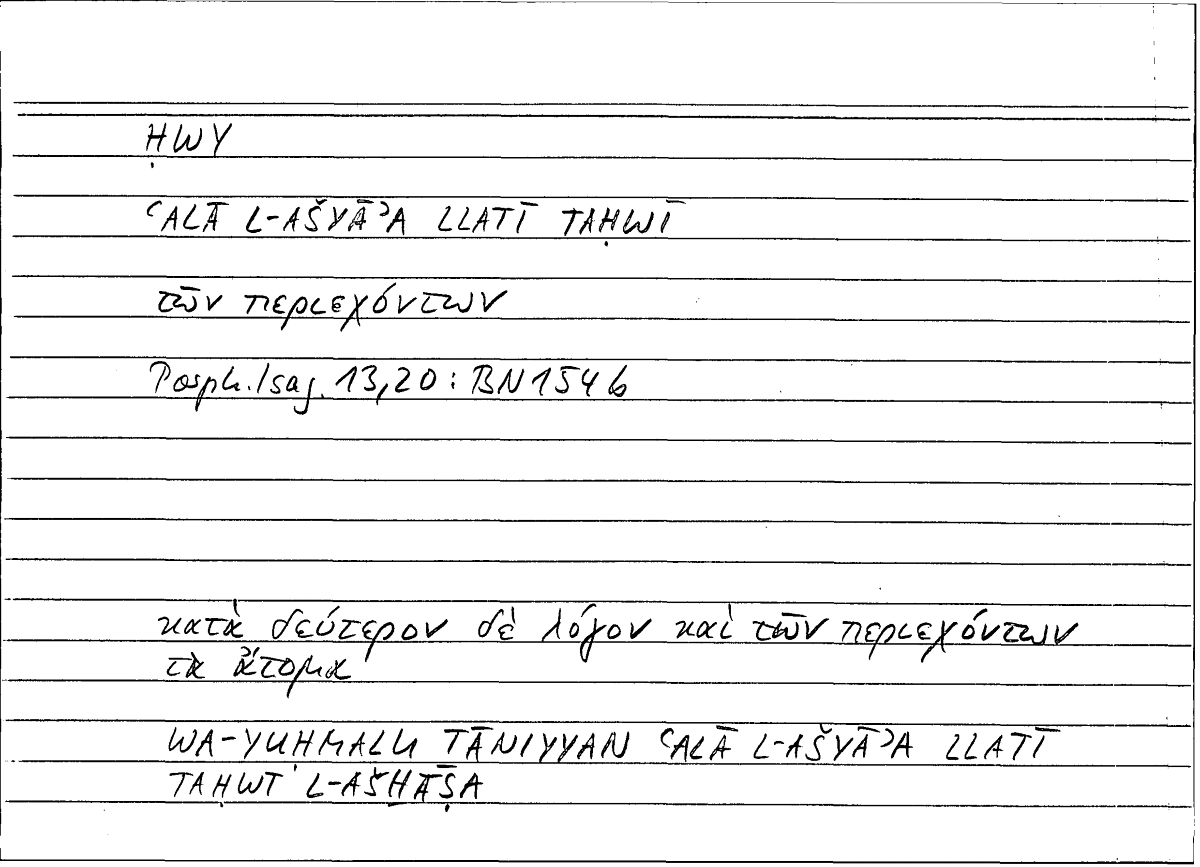 ḤWY
ʿALĀ L-AŠYĀʾA LLATĪ TAḤWĪ
τῶν περιεχόντων
Porph. Isag. 13,20 : BN 154 b
κατὰ δεύτερον δὲ λόγον καὶ τῶν περιεχόντων
τὰ ἄτομα
WA-YUḤMALU TĀNIYYAN ʿALĀ L-AŠYĀʾA LLATĪ
TAḤWĪ L-AŠḪĀṢA